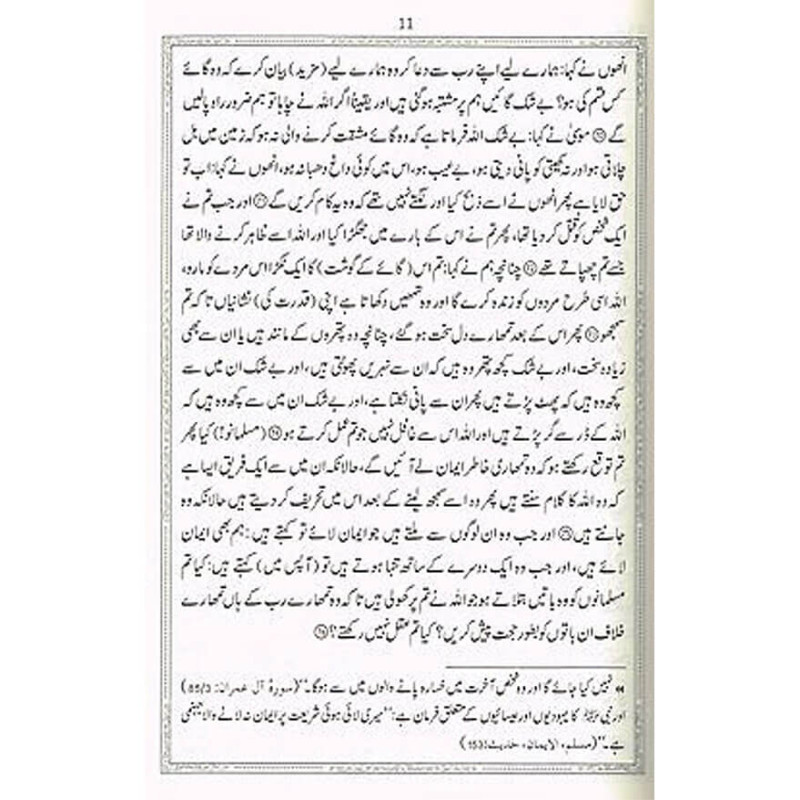 11
انھوں نے کہا: ہمارے لیے اپنے رب سے دعا کر وہ ہمارے لیے (مزید) بیان کرے کہ وہ گائے
کس قسم کی ہو؟ بے شک گائیں ہم پر مشتبہ ہوگئی ہیں اور یقیناً اگر اللہ نے چاہا تو ہم ضرور راہ پالیں
گے ۷۰ موسیٰ نے کہا: بے شک اللہ فرماتا ہے کہ وہ گائے مشقت کرنے والی نہ ہو کہ زمین میں ہل
چلاتی ہو اور نہ کھیتی کو پانی دیتی ہو، بے عیب ہو، اس میں کوئی داغ دھبا نہ ہو، انھوں نے کہا: اب تو
حق لایا ہے پھر انھوں نے اسے ذبح کیا اور لگتے نہیں تھے کہ وہ یہ کام کریں گے ۷۱ اور جب تم نے
ایک شخص کو قتل کر دیا تھا، پھر تم نے اس کے بارے میں جھگڑا کیا اور اللہ اسے ظاہر کرنے والا تھا
جسے تم چھپاتے تھے ۷۲ چنانچہ ہم نے کہا: تم اس (گائے کے گوشت) کا ایک ٹکڑا اس مردے کو مارو،
اللہ اسی طرح مردوں کو زندہ کرے گا اور وہ تمھیں دکھاتا ہے اپنی (قدرت کی) نشانیاں تاکہ تم
سمجھو ۷۳ پھر اس کے بعد تمھارے دل سخت ہوگئے، چنانچہ وہ پتھروں کے مانند ہیں یا ان سے بھی
زیادہ سخت، اور بے شک کچھ پتھر وہ ہیں کہ ان سے نہریں پھوٹتی ہیں، اور بے شک ان میں سے
کچھ وہ ہیں کہ پھٹ پڑتے ہیں پھر ان سے پانی نکلتا ہے، اور بے شک ان میں سے کچھ وہ ہیں کہ
اللہ کے ڈر سے گر پڑتے ہیں اور اللہ اس سے غافل نہیں جو تم عمل کرتے ہو ۷۴ (مسلمانو!) کیا پھر
تم توقع رکھتے ہو کہ وہ تمھاری خاطر ایمان لے آئیں گے، حالانکہ ان میں سے ایک فریق ایسا ہے
کہ وہ اللہ کا کلام سنتے ہیں پھر وہ اسے سمجھ لینے کے بعد اس میں تحریف کر دیتے ہیں حالانکہ وہ
جانتے ہیں ۷۵ اور جب وہ ان لوگوں سے ملتے ہیں جو ایمان لائے تو کہتے ہیں: ہم بھی ایمان
لائے ہیں، اور جب وہ ایک دوسرے کے ساتھ تنہا ہوتے ہیں تو (آپس میں) کہتے ہیں: کیا تم
مسلمانوں کو وہ باتیں بتلاتے ہو جو اللہ نے تم پر کھولی ہیں تاکہ وہ تمھارے رب کے ہاں تمھارے
خلاف ان باتوں کو بطور حجت پیش کریں؟ کیا تم عقل نہیں رکھتے؟ ۷۶
◄◄ نہیں کیا جائے گا اور وہ شخص آخرت میں خسارہ پانے والوں میں سے ہوگا۔‘‘ (سورۂ آل عمران: 85/3)
اور نبی ﷺ کا یہودیوں اور عیسائیوں کے متعلق فرمان ہے: ’’میری لائی ہوئی شریعت پر ایمان نہ لانے والا جہنمی
ہے۔‘‘ (مسلم، الایمان، حدیث: 153)